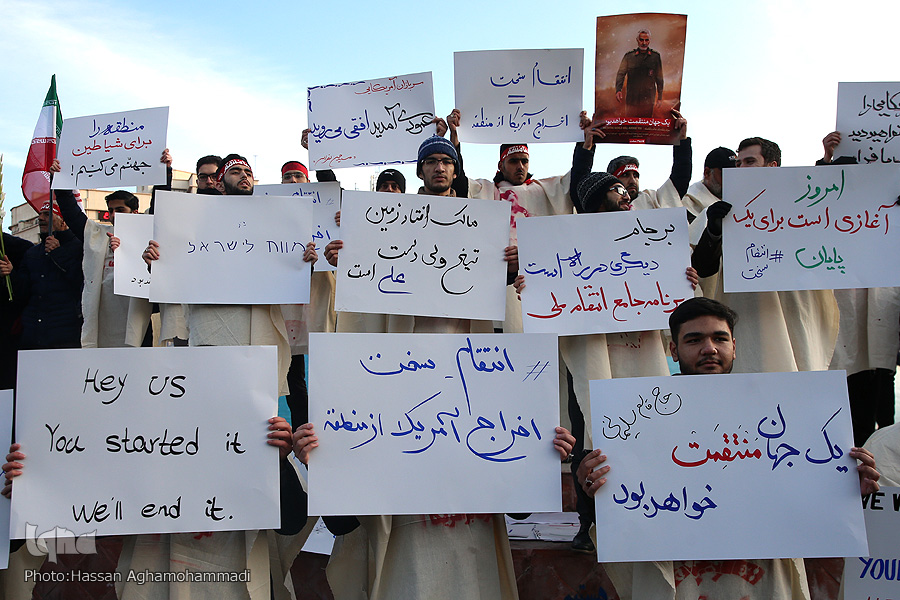 منطقه را
برای شیاطین
جهنم می‌کنیم!
سربازان آمریکایی
عمودی آمدید افقی می‌روید
انتقام سخت
=
اخراج آمریکا از منطقه
یک جهان منتقمت خواهد بود
خواهید بود
מוות לישראל
مالک افتاد زمین
تیغ ولی دست
علی است
برجام
دیگری در راه است
برنامه جامع انتقام ملی
امروز
آغازی است برای یک
پایان
#انتقام
سخت
Hey US
You started it
We'll end it.
#انتقام سخت
اخراج آمریکا از منطقه
حاج قاسم سلیمانی
یک جهان منتقمت
خواهد بود
YOU
END
iqna
Photo:Hassan Aghamohammadi